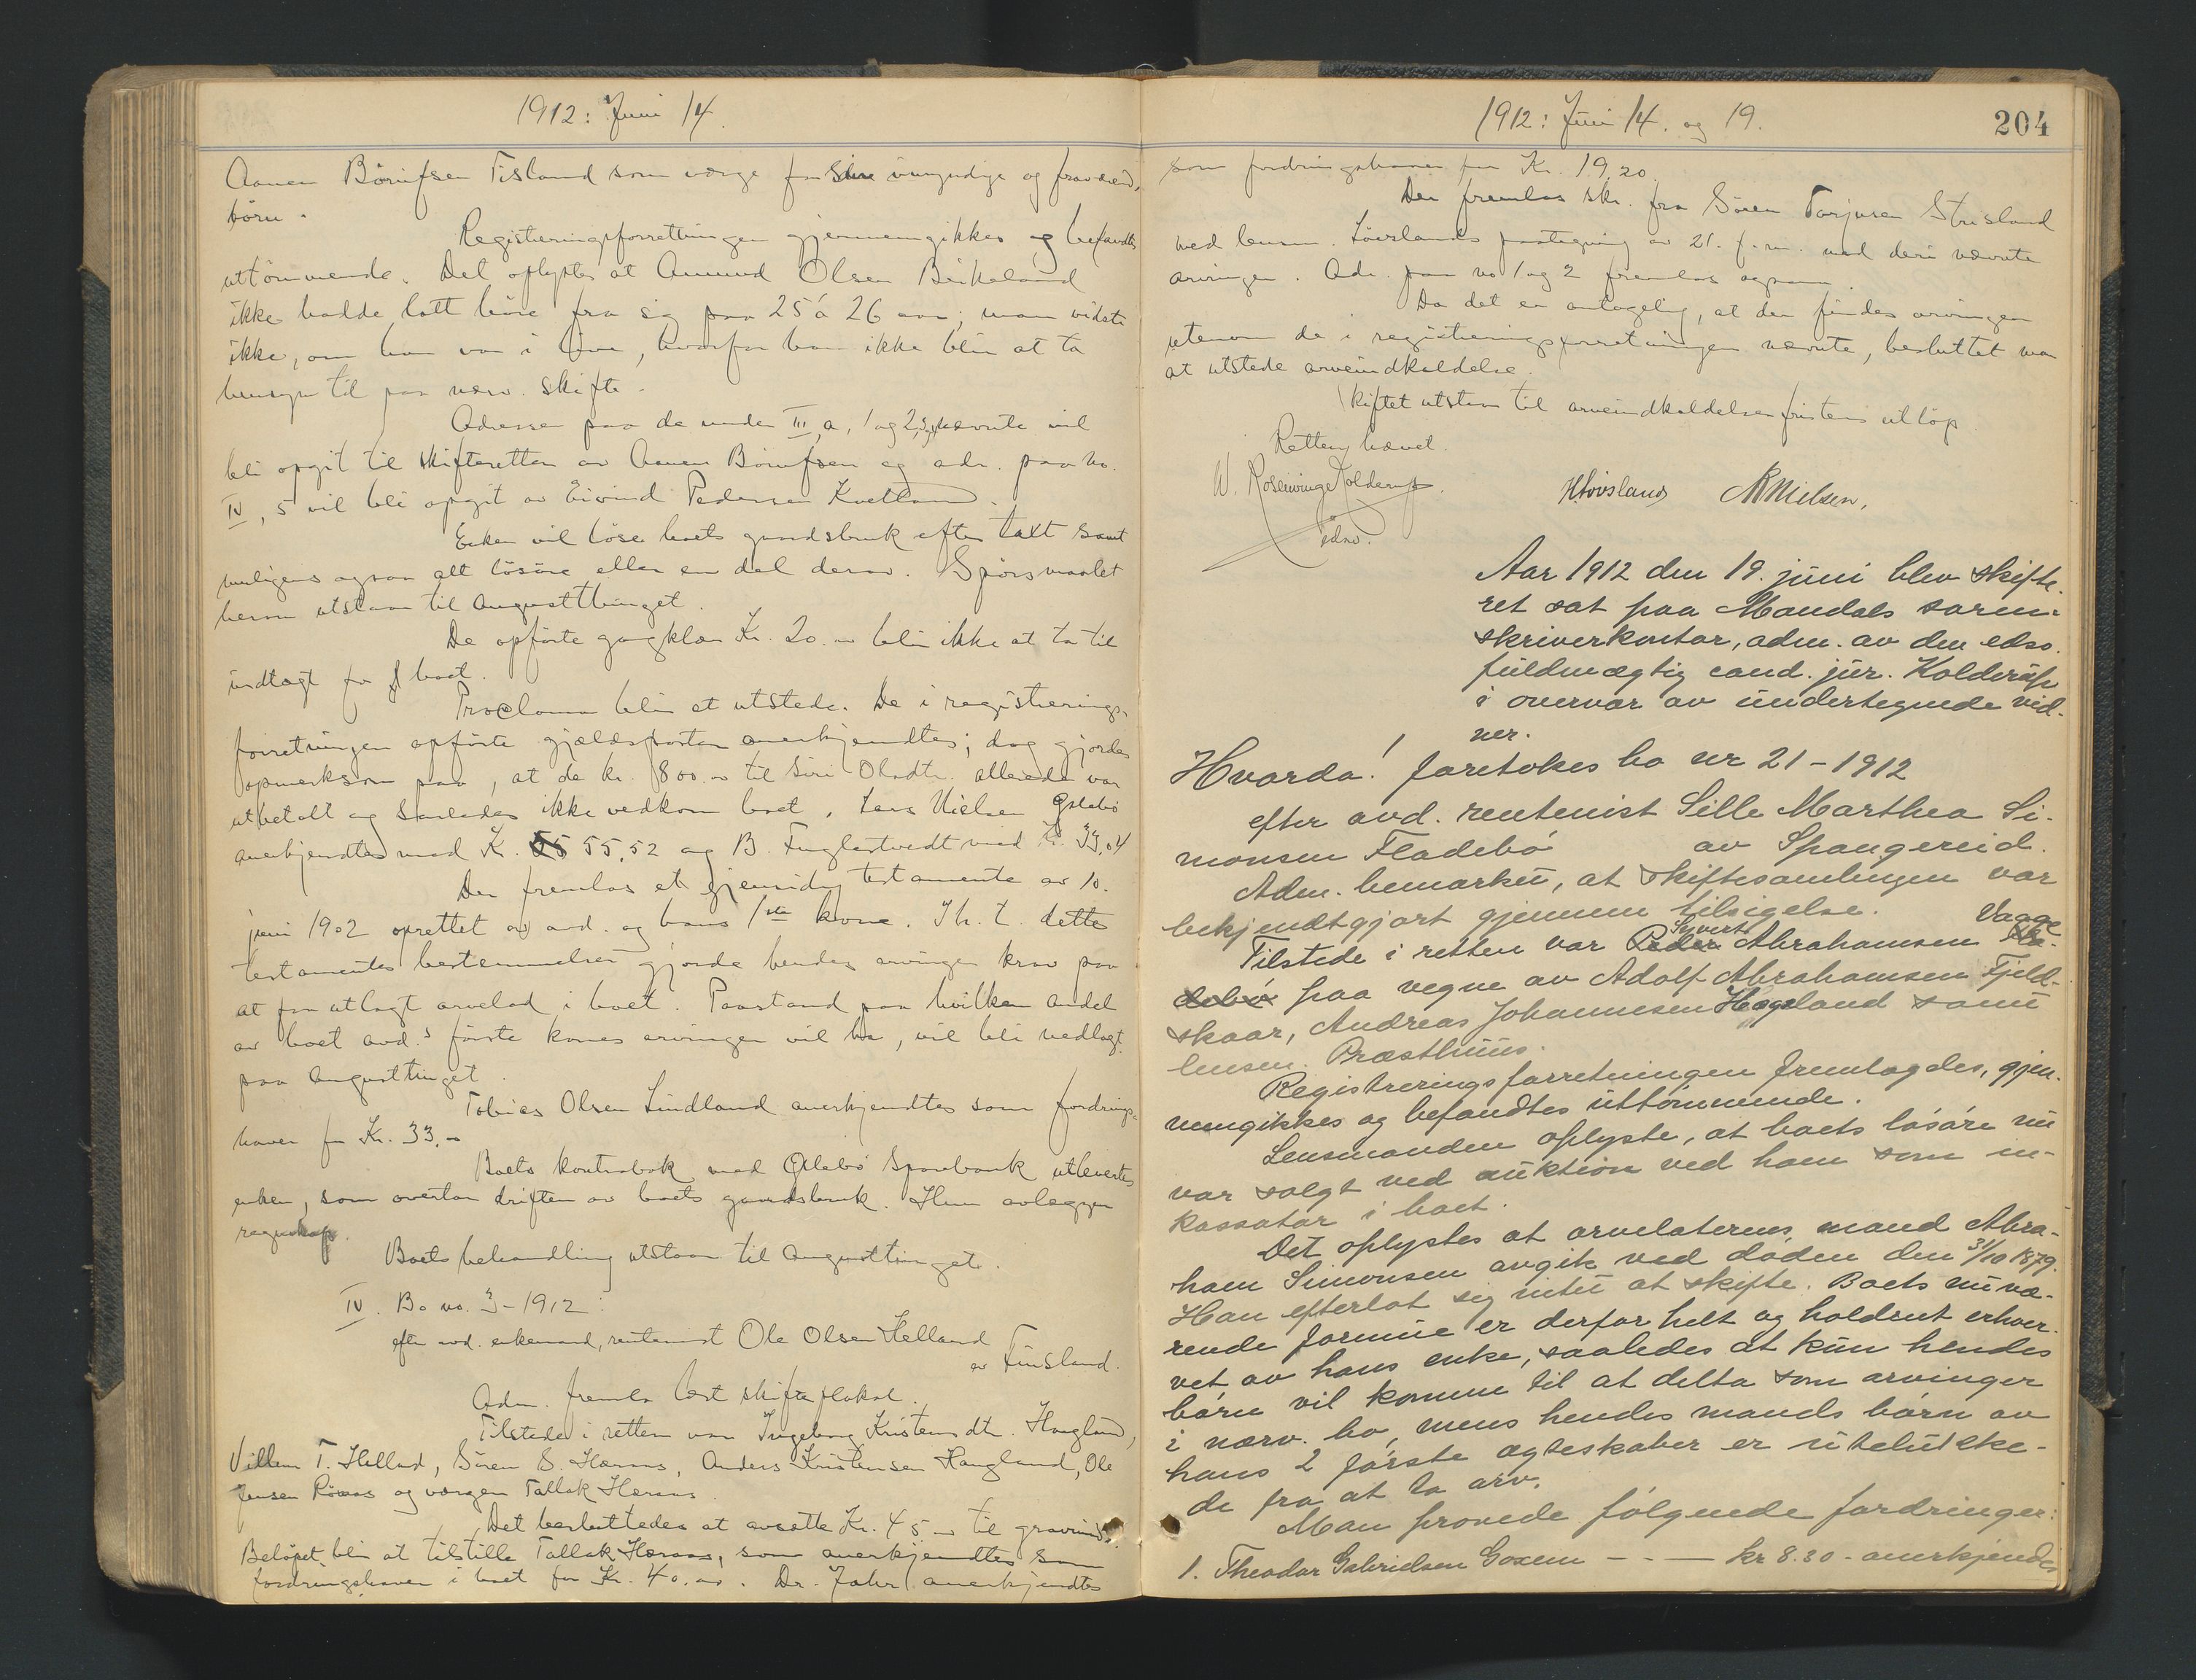 1912: Juni 14.
Aanen Börufsen Tisland som verge for sine umyndige og fraværend.
börn.
Registreringsforrettningen gjennemgikkes og befandtes
uttömmende. Det oplystes at Aamund Olsen Birkeland
ikke hadde latt höre fra sig paa 25 á 26 aar; man vidste
ikke, om han var i live, hvorfor han ikke blir at ta
hensyn til paa nærv. skifte.
Adresse paa de under III, a, 1 og 2, nævnte vil
bli opgit til skifteretten av Aanen Börufsen og adr. paa no.
IV, 5 vil bli opgit av Eivind Pedersen Kvetland.
Enken vil löse boets gaardsbruk efter takt samt
muligens ogsaa alt lösöre eller en del derav. Spörsmaalet
herom utstaar til Augusttinget.
De opförte gangklær Kr. 20.- blir ikke at ta til
indtægt for boet.
Proclama blir at utstede. De i registrerings-
forretningen opförte gjældsposter anerkjendtes; dog gjordes
opmerksom paa, at de kr. 800.- til Siri Olsdtr. allerede var
utbetalt og saaledes ikke vedkom boet. Lars Nielsen Öslebö
anerkjendtes med Kr. 55,52 og B. Fuglestvedt med Kr. 33,04
Der fremlas et gjensidig testamente av 10.
juni 1902 oprettet av avd. og hans 1ste kone. Ih. t. dette
testamentes bestemmelser gjorde hendes arvinger krav paa
at faa utlagt arvelod i boet. Paastand paa hvilken andel
av boet avd.s förste kones arvinger vil ha, vil bli nedlagt
paa Augusttinget.
Tobias Olsen Lindland anerkjendtes som fordrings-
haver for Kr. 33.-
Boets kontrabok med Öslebö Sparebank utlevertes
enken, som overtar driften av boets gaardsbruk. Hun avlægger
regnskap.
Boets behandling utstaar til Augusttinget.
IV. Bo no. 3-1912:
efter avd. enkemand, rentenist Ole Olsen Helland
av Finsland.
Adm. fremla læst skifteplakat.
Tilstede i retten var Ingeborg Kristensdtr. Haugland,
Villem T. Helland, Sören S. Heraas, Anders Kristensen Haugland, Ole
Jensen Röiaas og vergen Tallak Heraas.
Det besluttedes at avsætte Kr. 45.- til gravmind.
Belöpet blir at tilstille Tallak Heraas, som anerkjendtes som
fordringshaver i boet for Kr. 40.00. Dr. Jahr anerkjendtes
1912: Juni 14. og 19.
204
som fordringshaver for Kr. 19,20.
Der fremlas skr. fra Sören Tarjusen Stusland
med lensm. Lövslands paategning av 21. f.m. med deri nævnte
arvinger. Adr. paa no 1 og 2 fremlas ogsaa.
Da det er antagelig, at der findes arvinger
utenom de i registreringsforretningen nævnte, besluttet man
at utstede arveindkaldelse.
Skiftet utstaar til arveindkaldelsesfristens utlöp.
Retten hævet.
W. Rosenvinge Kolderup.
edsv.
H. Lövsland ANielsen,
Aar 1912 den 19. juni blev skifte-
ret sat paa Mandals soren-
skriverkontor, adm. av den edsv.
fuldmægtig cand. jur. Kolderup
i overvær av undertegnede vid-
ner.
Hvorda! foretokes bo nr 21-1912
efter avd. rentenist Sille Marthea Si-
monsen Fladebö av Spangereid.
Adm. bemerket, at skiftesamlingen var
bekjendtgjort gjennem tilsigelse.
Tilstede i retten var Peder Syvert Abrahamsen Vaage Fla-
debö paa vegne av Adolf Abrahamsen Fjeld-
skaar, Andreas Johannesen Hægeland samt
lensm. Præsthuus.
Registreringsforretningen fremlagdes, gjen-
nemgikkes og befandtes uttömmende.
Lensmanden oplyste, at boets lösöre nu
var solgt ved auktion ved ham som in-
kassator i boet.
Det oplystes at arvelaterens mand Abra-
ham Simonsen avgik ved döden den 31/10 1879.
Han efterlot sig intet at skifte. Boets nuvæ-
rende formue er derfor helt og holdent erhver-
vet av hans enke, saaledes at kun hendes
börn vil komme til at delta som arvinger
i nærv. bo, mens hendes mands börn av
hans 2 förste egteskaber er utelukke-
de fra at ta arv.
Man prövede fölgende fordringer:
1. Theodor Gabrielsen Goxem - - - kr 8.30 - anerkjendes